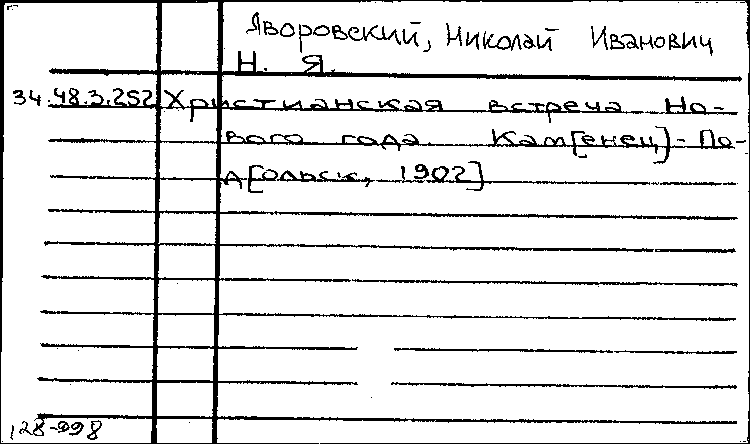 Яворовский, Николай Иванович
Н. Я.
34.48.3.252 Христианская встреча Но-
вого года. Кам[енец]-По-
д[ольск, 1902]
128-998